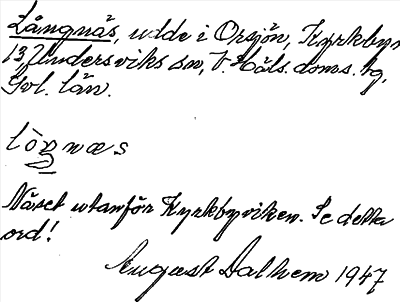 Långnäs, udde i Orsjön, Kyrkbyn
13, Undersviks sn, V. Häls. doms. tg,
Gvl. län.
lòŋnæs
Näset utanför Kyrkbyviken. Se detta
ord!
August Dalhem 1947